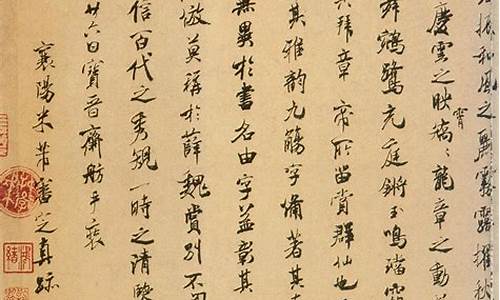 振和風之麗霧露擢秋
慶雲之映霄矯〻龍章之動
舞鵷鷺充庭鏘玉鳴璫
其拜章帝所留賞群仙也
其雅韻九觴字備著其真
無異於書名由字益彰其
倣莫稱於薛魏賞別不
信百代之秀規一時之清鑒
廿六日寶晉齋舫手裝
襄陽米芾審定真跡